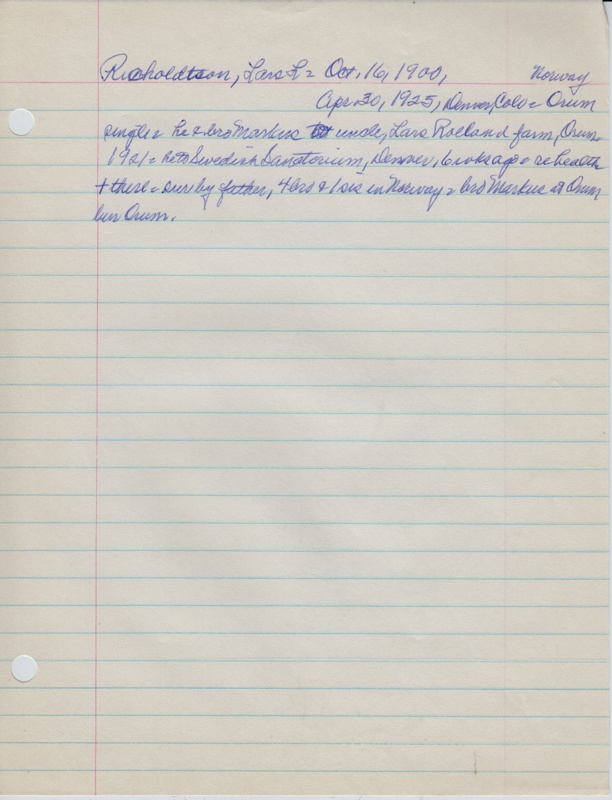 Richoldtson, Lars L = Oct. 16, 1900, Norway
Apr. 30, 1925, Denver, Colo = Orum
single = he & bro Markus to uncle, Lars Rolland farm, Orum
1921 = he to Swedish Sanatorium, Denver, 6 wks ago = re health
+ there = sur by father, 4 bro & 1 sis in Norway = bro Markus at Orum
bur Orum.